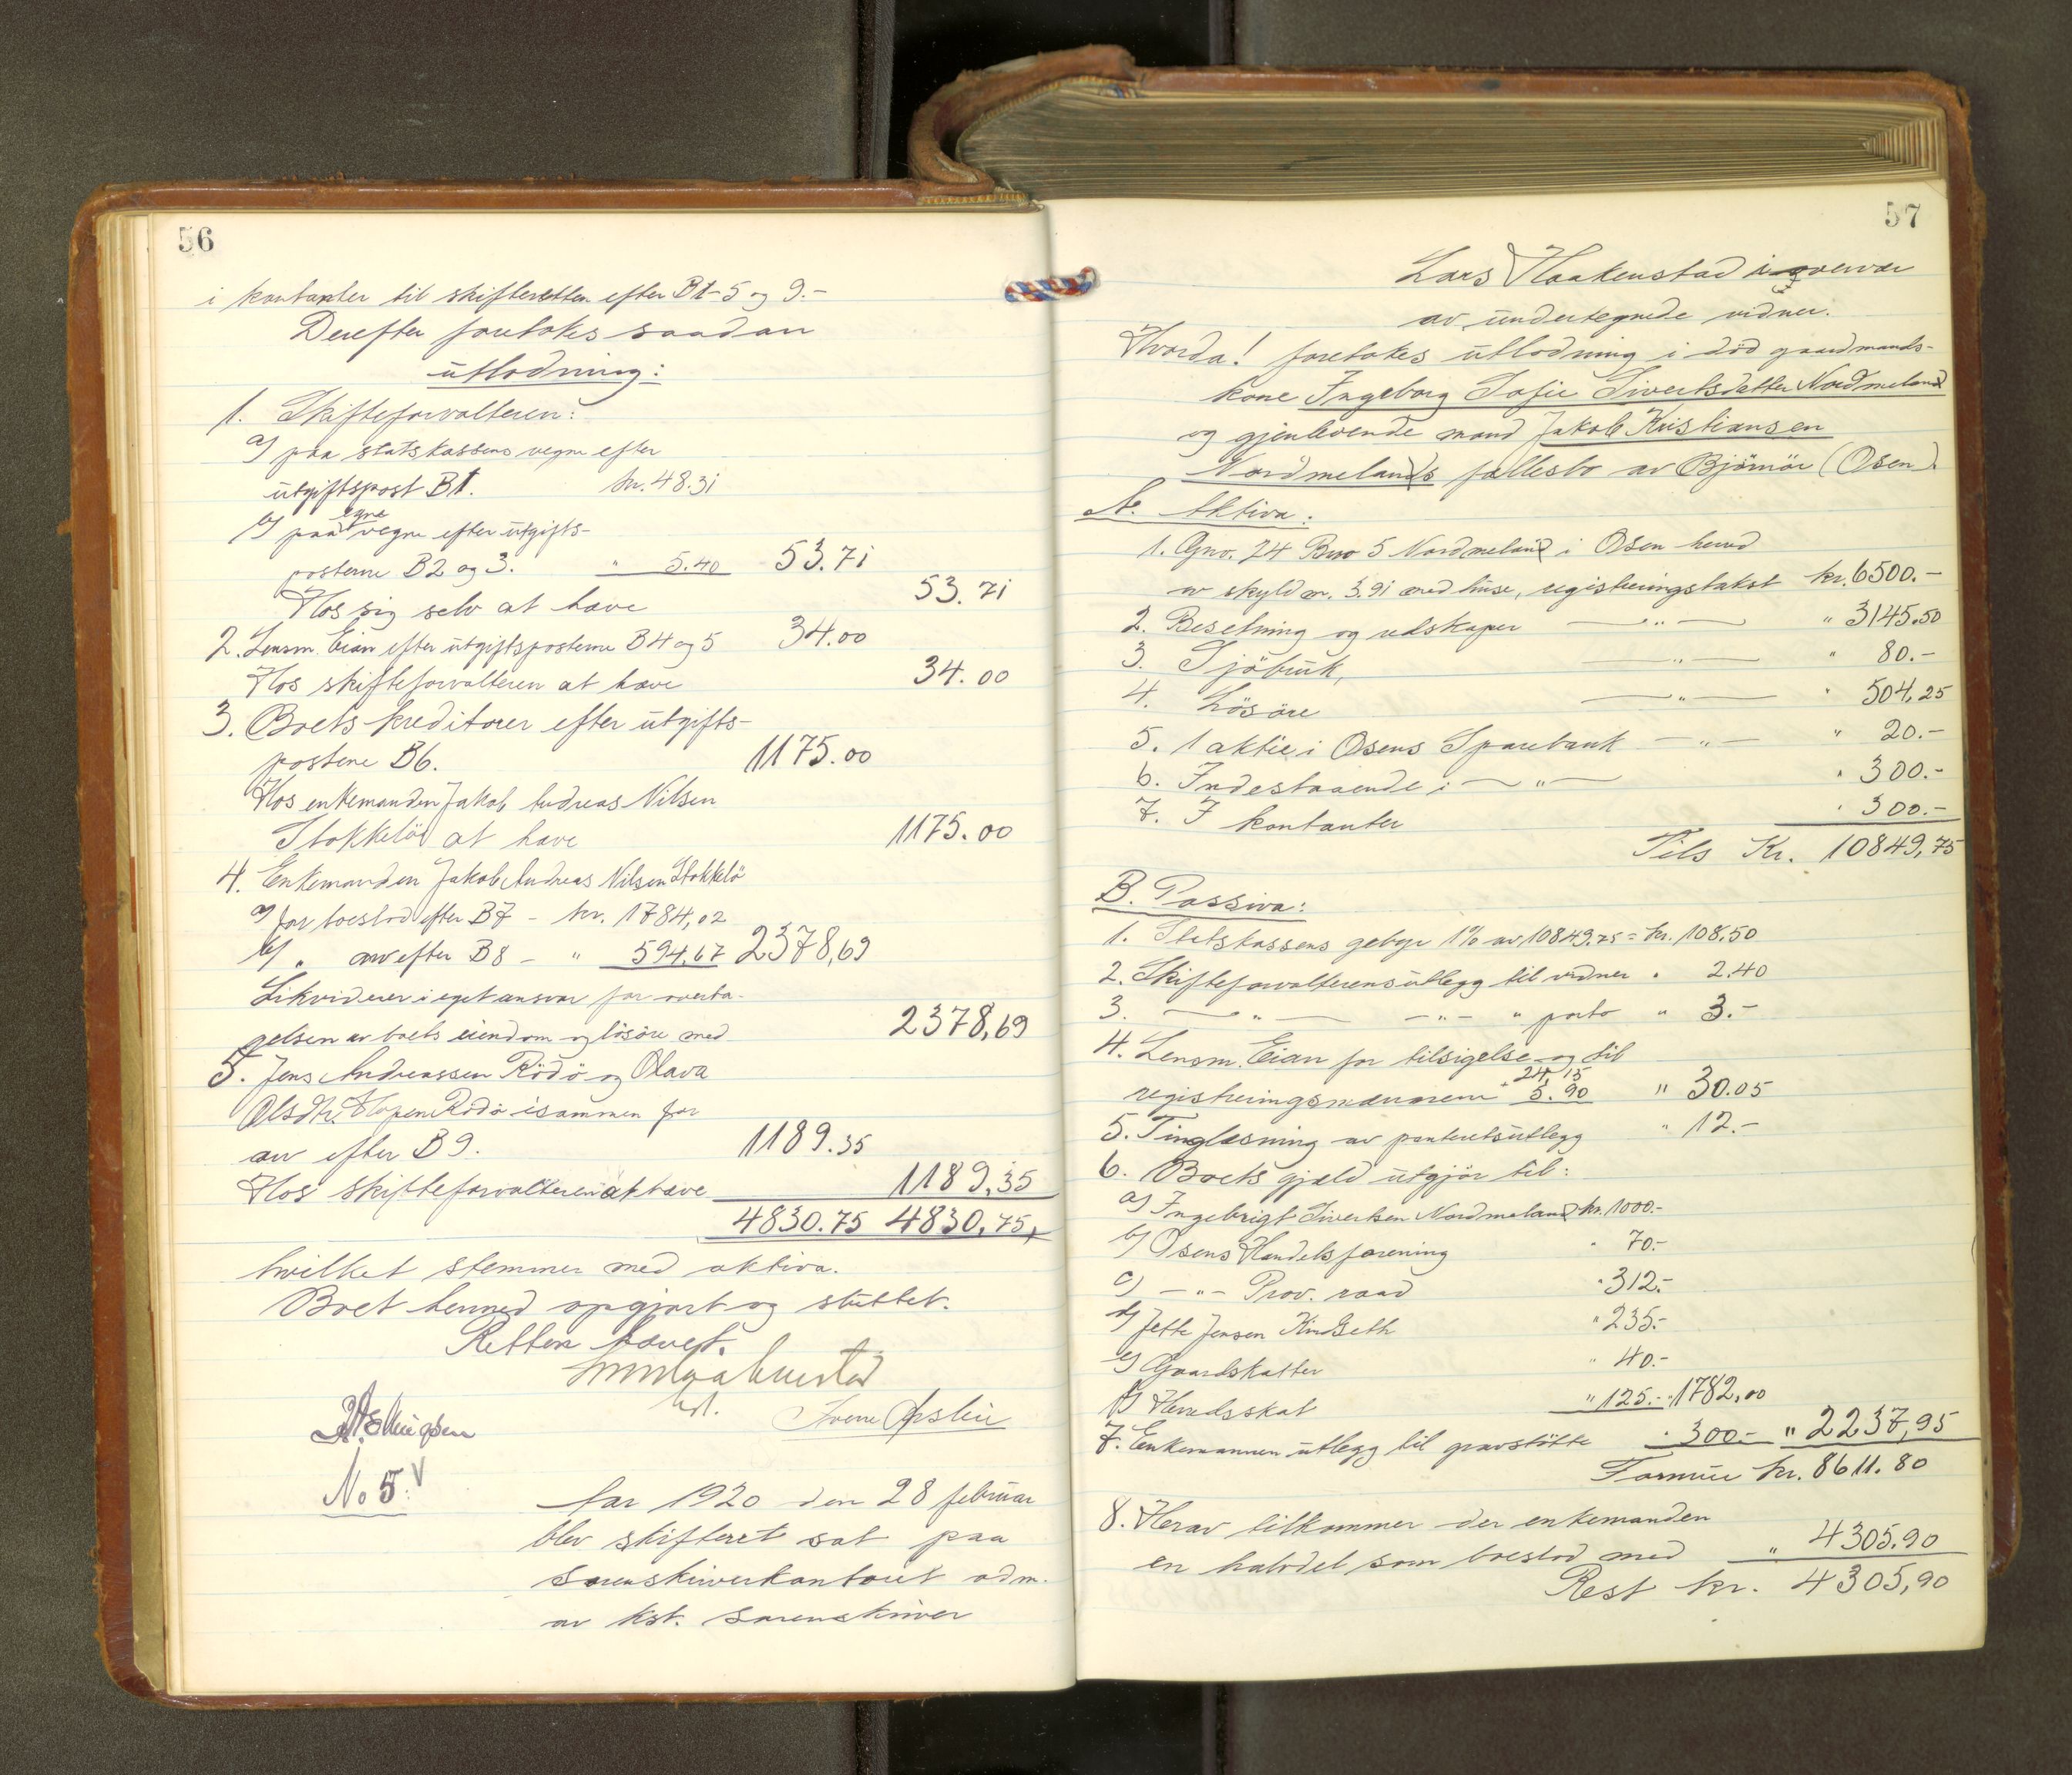 56
i kontanter til skifteretten efter B1-5 og 9.-
Derefter foretokes saadan
utlodning:
1. Skifteforvalteren:
a) paa statskassens vegne efter
utgiftspost B1. kr. 48.31
b) paa egne vegne efter utgifts-
posterne B2 og 3. " 5.40 53.71
Hos sig selv at have 53.71
2. Lensm. Eian efter utgiftsposterne B4 og 5 34.00
Hos skifteforvalteren at have 34.00
3. Boets kreditorer efter utgifts-
postene B6. 1175.00
Hos enkemanden Jakob Andreas Nilsen
Stokkelö at have 1175.00
4. Enkemanden Jakob Andreas Nilsen Stokkelö
a) for boeslod efter B7 - kr. 1784,02
b) " arv efter B8 - " 594.67 2378,69
Likviderer i eget ansvar for overta-
gelsen av boets eiendom og lösöre med 2378,69
5. Jens Andreassen Rödö og Olava
Olsdtr. Hopen Rödö isammen for
arv efter B9. 1189.35
Hos skifteforvalteren at have 1189,35
4830.75 4830,75,
hvilket stemmer med aktiva.
Boet hermed opgjort og sluttet.
Retten hævet.
No 5.
Aar 1920 den 28 februar
blev skifteret sat paa
Sorenskriverkontoret adm.
av kst. sorenskriver
57
Lars Haakenstad i overvær
av undertegnede vidner.
Hvorda! foretokes utlodning i död gaardmands-
kone Ingeborg Sofie Sivertsdatter Nordmeland
og gjenlevende mand Jakob Kristiansen
Nordmelands fællesbo av Björnör (Osen).
A. Aktiva:
1. Gno. 74 Bno 5 Nordmeland i Osen herred
av skyld m. 3.91 med huse, registreringstakst kr. 6500.-
2. Besetning og redskaper — " — " 3145.50
3. Sjöbruk, — " — " 80.-
4. Lösöre — " — " 504,25
5. 1 aktie i Osens Sparebank — " — " 20.-
6. Indestaaende i — " — " 300.-
7. I kontanter " 300.-
Tils Kr. 10849,75
B. Passiva:
1. Statskassens gebyr 1% av 10849.75 = kr. 108.50
2. Skifteforvalterens utlegg til vidner " 2.40
3. — " — — " — " porto " 3.-
4. Lensm. Eian for tilsigelse og til
24,15
registreringsmænnene + 5.90 " 30.05
5. Tinglæsning av panteretsutlegg " 12.-
6. Boets gjæld utgjör til:
a) Ingebrigt Sivertsen Nordmeland kr. 1000.-
b) Osens Handelsforening " 70.-
c) — " — Prov. raad " 312.-
d) Jette Jensen Kindseth " 235.-
e) Gaardskatter " 40.-
f) Herredsskat " 125.- " 1782,00
7. Enkemannen utlegg til gravstötte " 300.- " 2237,95
Formue kr. 8611.80
8. Herav tilkommer der enkemanden
en halvdel som boeslod med " 4305.90
Rest kr. 4305,90